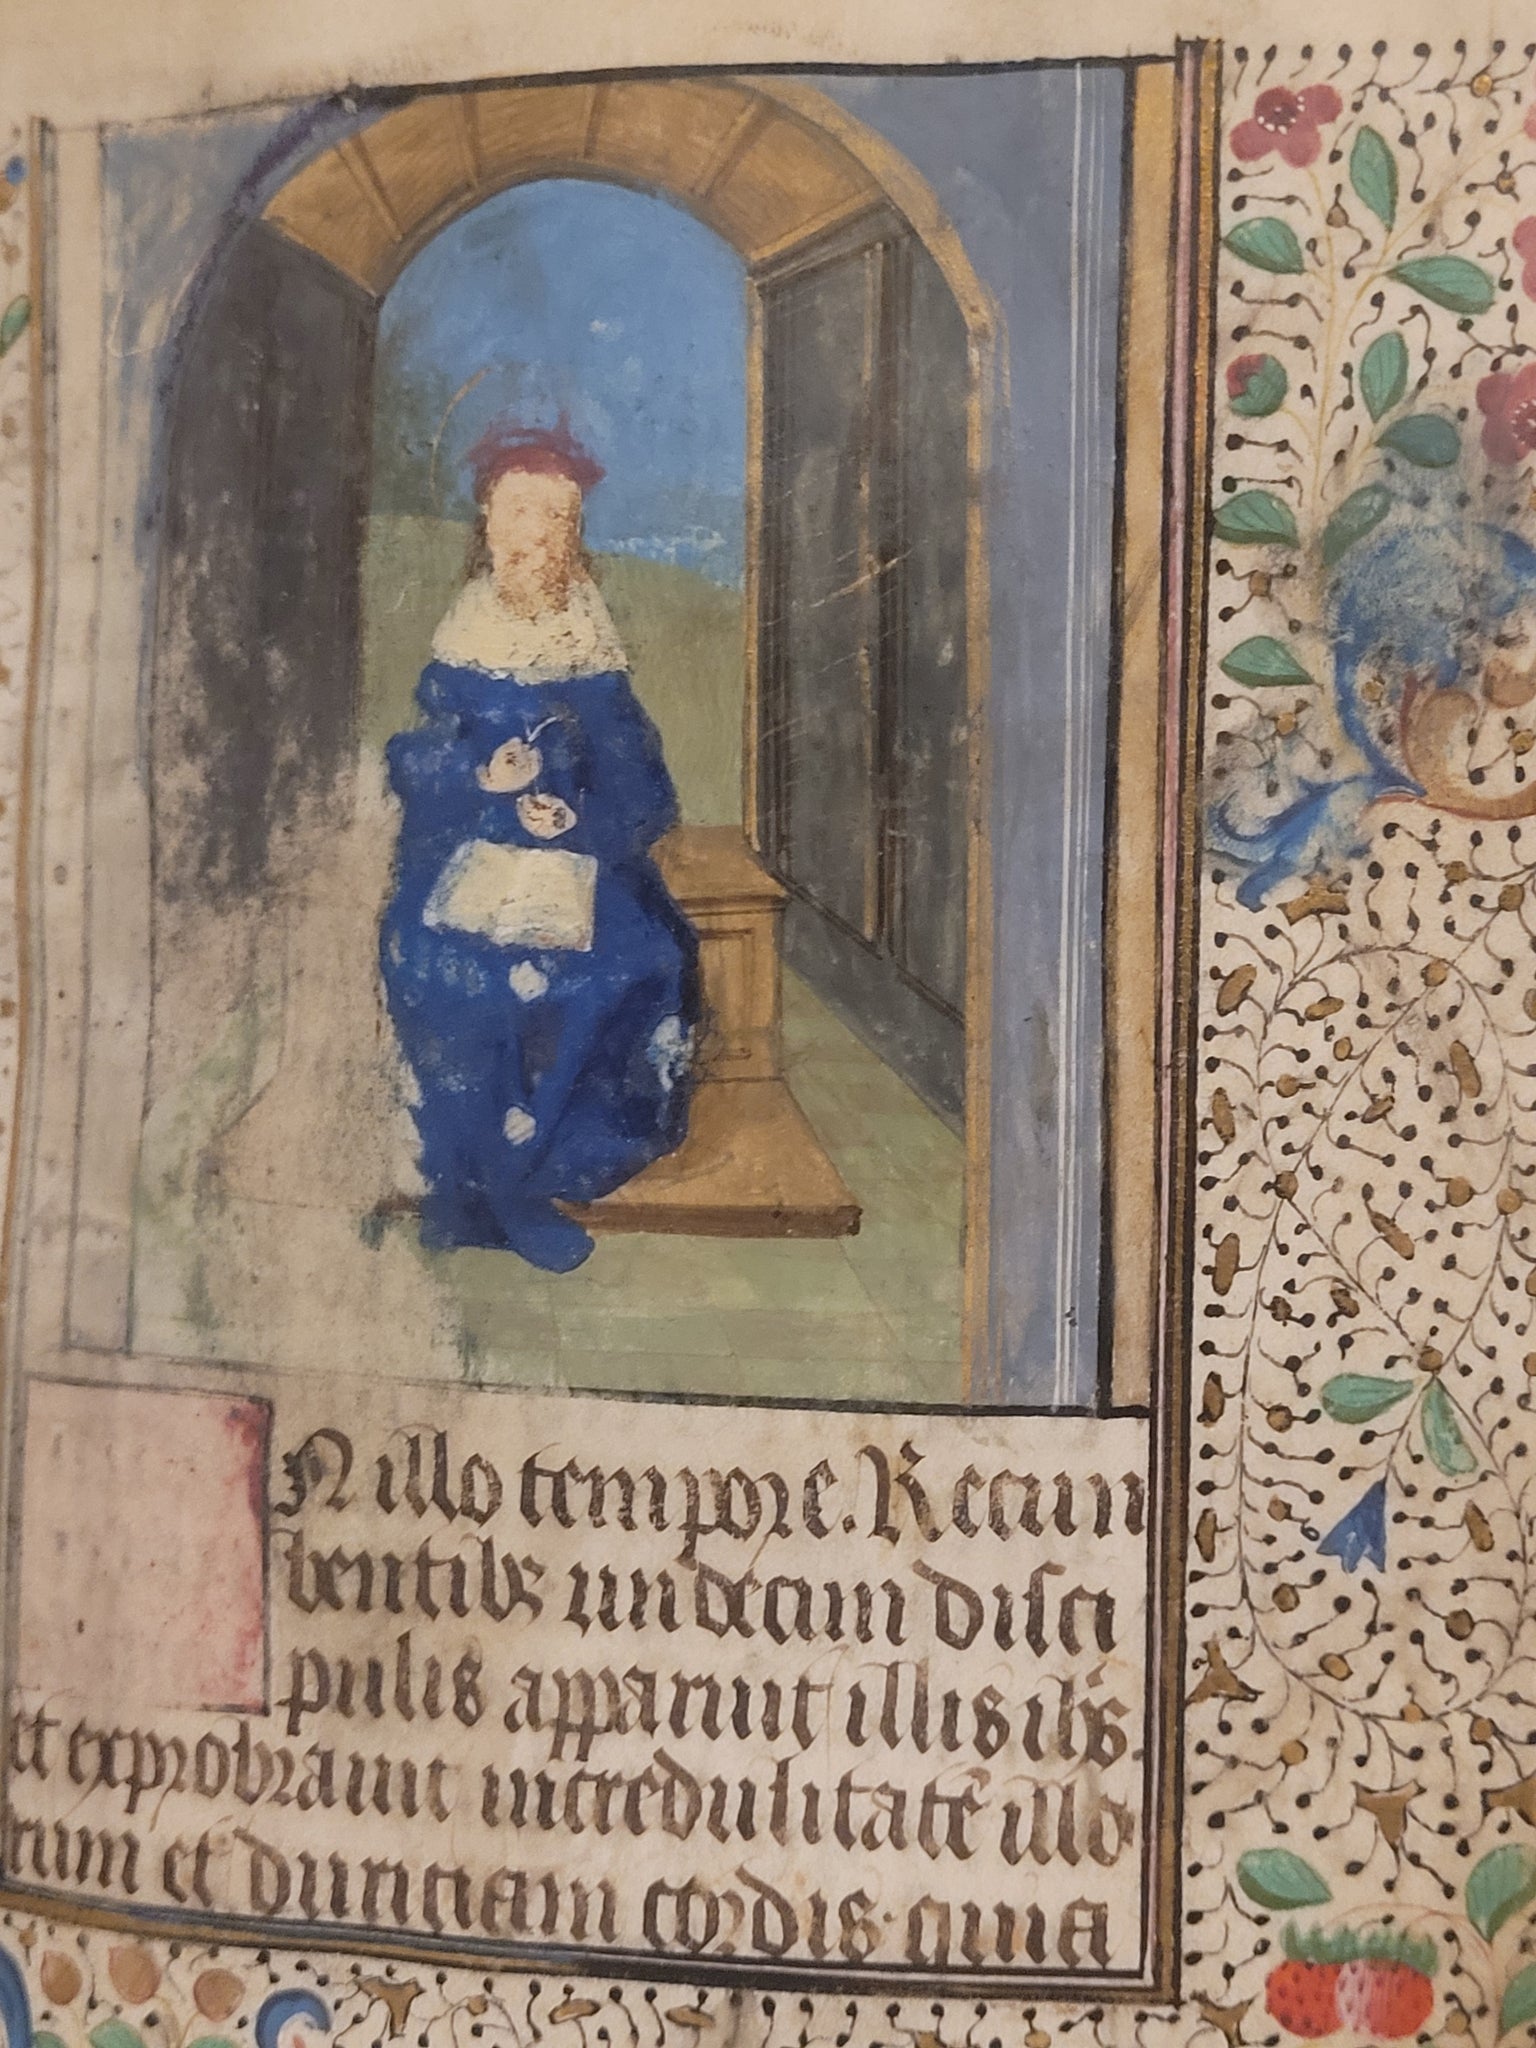 N illo tempore. Recum
bentibꝰ undecim disci
pulis apparuit illis ihs̄.
et exprobrauit incredulitatē illo
rum et duriciam cordis. quia